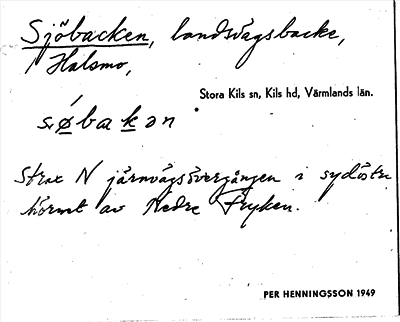 Sjöbacken, landsvägsbacke,
Halsmo,
Stora Kils sn, Kils hd, Värmlands län.
søbakən
Strax N järnvägsövergången i sydöstra
hörnet av Nedre Fryken.
PER HENNINGSSON 1949